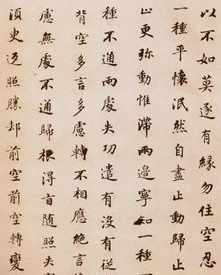 以不如莫逐有緣勿住空忍
一種平懷泯然自盡止動歸止
止更弥動惟滯兩邊寧知一種
種不通兩處失功遣有沒有從
背空多言多慮轉不相應絕言
慮無處不通歸根得旨隨照失
須臾返照勝却前空前空轉變